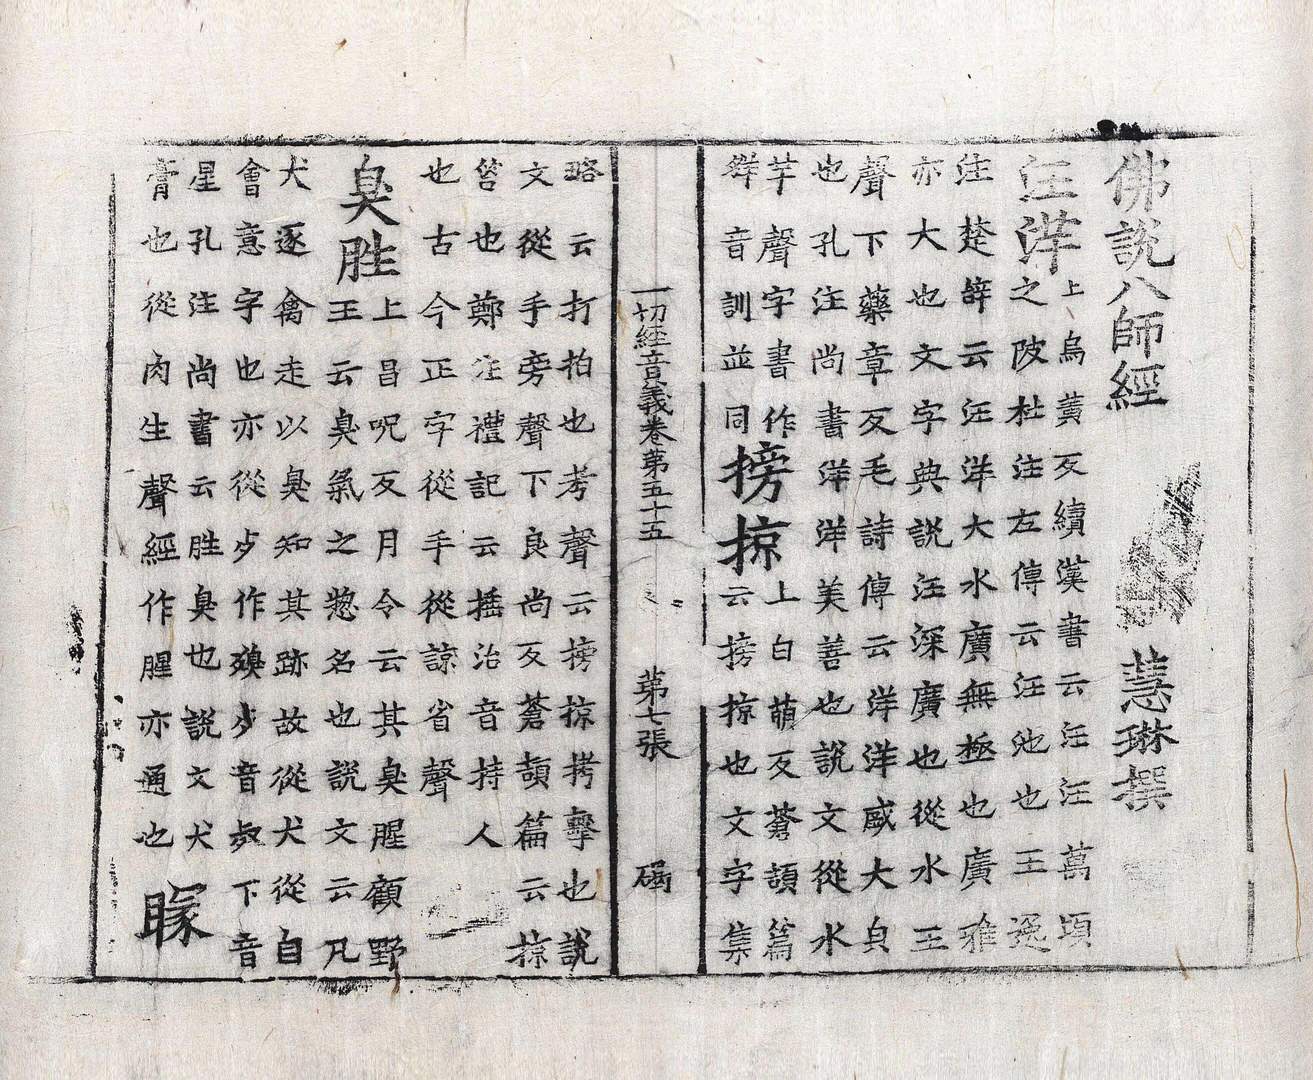 佛說八師經　慧琳撰
汪洋
上烏黃反續漢書云汪汪萬頃
之陂杜注左傳云汪池也王逸
注楚辞云汪洋大水廣無極也廣雅
亦大也文字典說汪深廣也從水王
聲下藥章反毛詩傳云洋洋盛大皃
也孔注尚書洋洋美善也說文從水
芉聲字書作
㵝音訓並同
搒掠
上白萌反蒼頡篇
云搒掠也文字集
一切經音義卷第五十五　第七張　碣
略云打拍也考聲云搒掠拷擊也說
文從手旁聲下良尚反蒼頡篇云掠
笞也鄭注禮記云捶治音持人
也古今正字從手從諒省聲
臭胜
上昌呪反月令云其臭腥顧野
王云臭氣之惣名也說文云凡
犬逐禽走以臭知其跡故從犬從自
會意字也亦從歹作殠歹音㱙下音
星孔注尚書云胜臭也說文犬
膏也從肉生聲經作腥亦通也
䐁